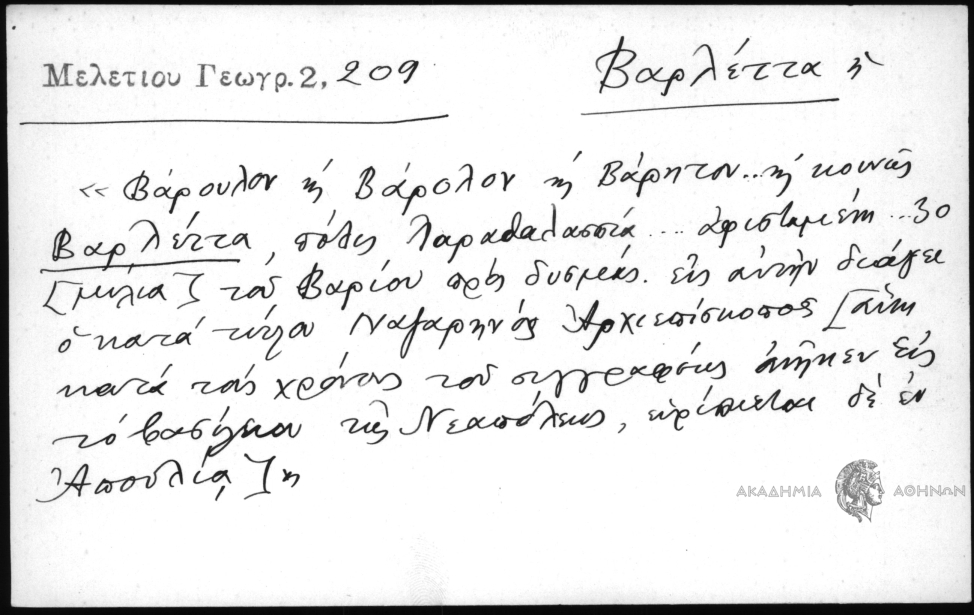 Μελετιου Γεωγρ. 2, 209
Βαρλέττα ἡ
« Βάρουλον ἢ Βάρολον ἢ Βάρητον.. ἢ κοινῶς
Βαρλέττα, πόλις παραθαλασσία ... ἀφισταμένη ... 30
[μίλια] τοῦ Βαρίου πρὸς δυσμάς. εἰς αὐτὴν διάγει
ὁ κατὰ τίτλον Ναζαρηνὸς Ἀρχιεπίσκοπος [αὕτη
κατὰ τοὺς χρόνους τοῦ συγγραφέως ἀνῆκεν εἰς
τὸ βασίλειον τῆς Νεαπόλεως, εὑρίσκεται δὲ ἐν
Ἀπουλίᾳ]»
ΑΚΑΔΗΜΙΑ ΑΘΗΝΩΝ